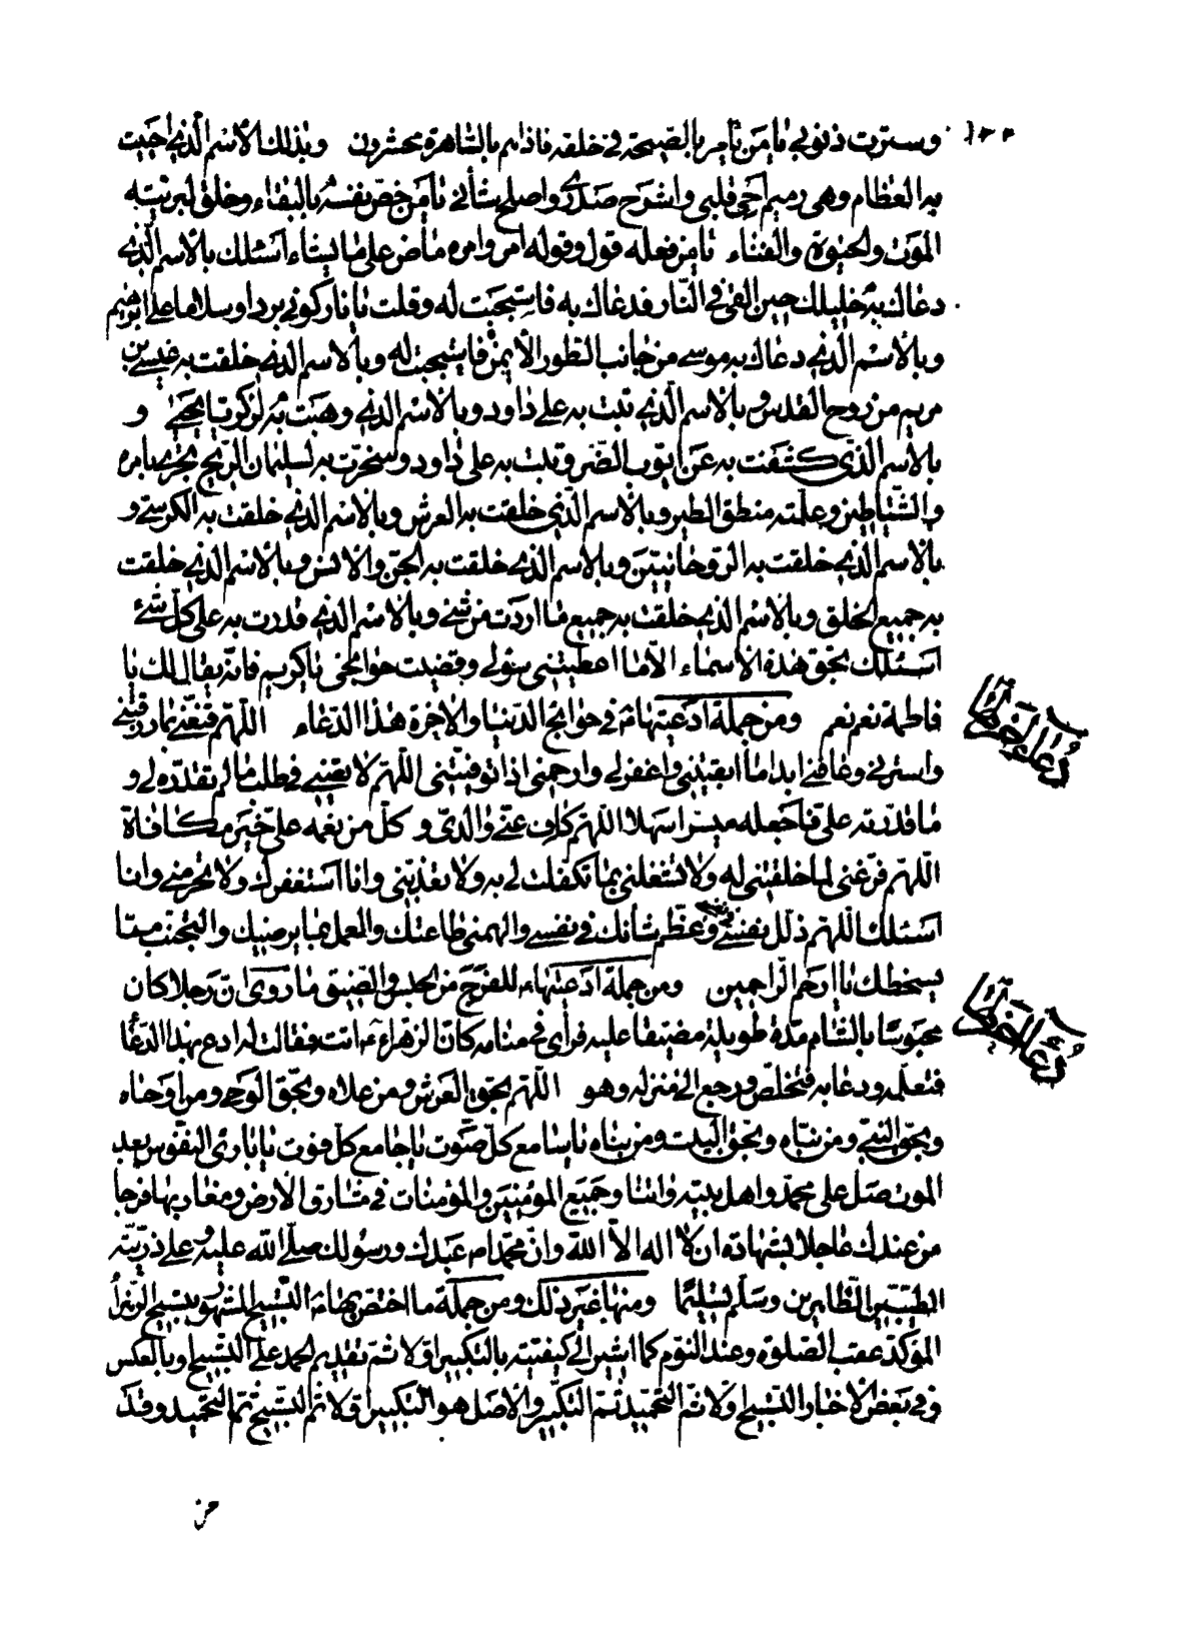 ١٢٢
وسترت ذنوبي يا من يأمر بالصيحة في خلقه فاذا هم بالساهرة محشرون وبذلك الاسم الذي احييت
به العظام وهي رميم احي قلبي واشرح صدري واصلح شأني يا من خص نفسه بالبقاء وخلق لبريته
الموت والحيوة والفناء يا من فعله قول وقوله امر وامره ماض على ما يشاء اسئلك بالاسم الذي
دعاك به خليلك حين القي في النار فدعاك به فاستجبت له وقلت يا نار كوني بردا وسلاما على ابراهيم
وبالاسم الذي دعاك به موسى من جانب الطور الايمن فاستجبت له وبالاسم الذي خلقت به عيسى بن
مريم من روح القدس وبالاسم الذي تبت به على داود وبالاسم الذي وهبت به لزكريا يحيى و
بالاسم الذي كشفت به عن ايوب الضر وتبت به على داود وسخرت به لسليمان الريح تجري بامره
والشياطين وعلمته منطق الطير وبالاسم الذي خلقت به العرش وبالاسم الذي خلقت به الكرسي و
بالاسم الذي خلقت به الروحانيين وبالاسم الذي خلقت به الجن والانس وبالاسم الذي خلقت
به جميع الخلق وبالاسم الذي خلقت به جميع ما اردت من شئ وبالاسم الذي قدرت به على كل شئ
اسئلك بحق هذه الاسماء الا ما اعطيتني سؤلي وقضيت حوائجي يا كريم فانه يقال لك يا
فاطمة نعم نعم ومن جملة ادعيتها ع في حوائج الدنيا والاخرة هذا الدعاء اللهم قنعني بما رزقتني
واسترني وعافني ابدا ما ابقيتني واغفر لي وارحمني اذا توفيتني اللهم لا تعيني في طلب ما لم تقدره لي و
ما قدرته علي فاجعله ميسرا سهلا اللهم كاف عني والدي وكل من نعمه علي خير مكافاة
اللهم فرغني لما خلقتني له ولا تشغلني بما تكفلت لي به ولا تعذبني وانا استغفرك ولا تحرمني وانا
اسئلك اللهم ذلل نفسي وعظم شأنك في نفسي والهمني طاعتك والعمل بما يرضيك والتجنب مما
يسخطك يا ارحم الراحمين ومن جملة ادعيتها ع للفرج من الحبس والضيق ما روى ان رجلا كان
محبوسا بالشام مدة طويلة مضيقا عليه فرأى في منامه كان الزهراء ع اتت فقالت له ادع بهذا الدعاء
فتعلمه ودعا به فتخلص ورجع الى منزله وهو اللهم بحق العرش ومن علاه وبحق الوحي ومن اوحاه
وبحق النبي ومن نباه وبحق البيت ومن بناه يا سامع كل صوت يا جامع كل فوت يا بارئ النفوس بعد
الموت صل على محمد واهل بيته واتنا وجميع المؤمنين والمؤمنات في مشارق الارض ومغاربها فرجا
من عندك عاجلا بشهادة ان لا اله الا الله وان محمدا عبدك ورسولك صلى الله عليه وعلى ذريته
الطيبين الطاهرين وسلم تسليما ومنها غير ذلك ومن جملة ما اختص بها ع التسبيح المشهور بتسبيح الزهراء
المؤكد عقب الصلوة وعند النوم كما اشير الى كيفيته بالتكبير اولا ثم تقديم الحمد على التسبيح او بالعكس
وفي بعض الاخبار التسبيح اولا ثم التحميد ثم التكبير والاصل هو التكبير اولا ثم التسبيح ثم التحميد وقد